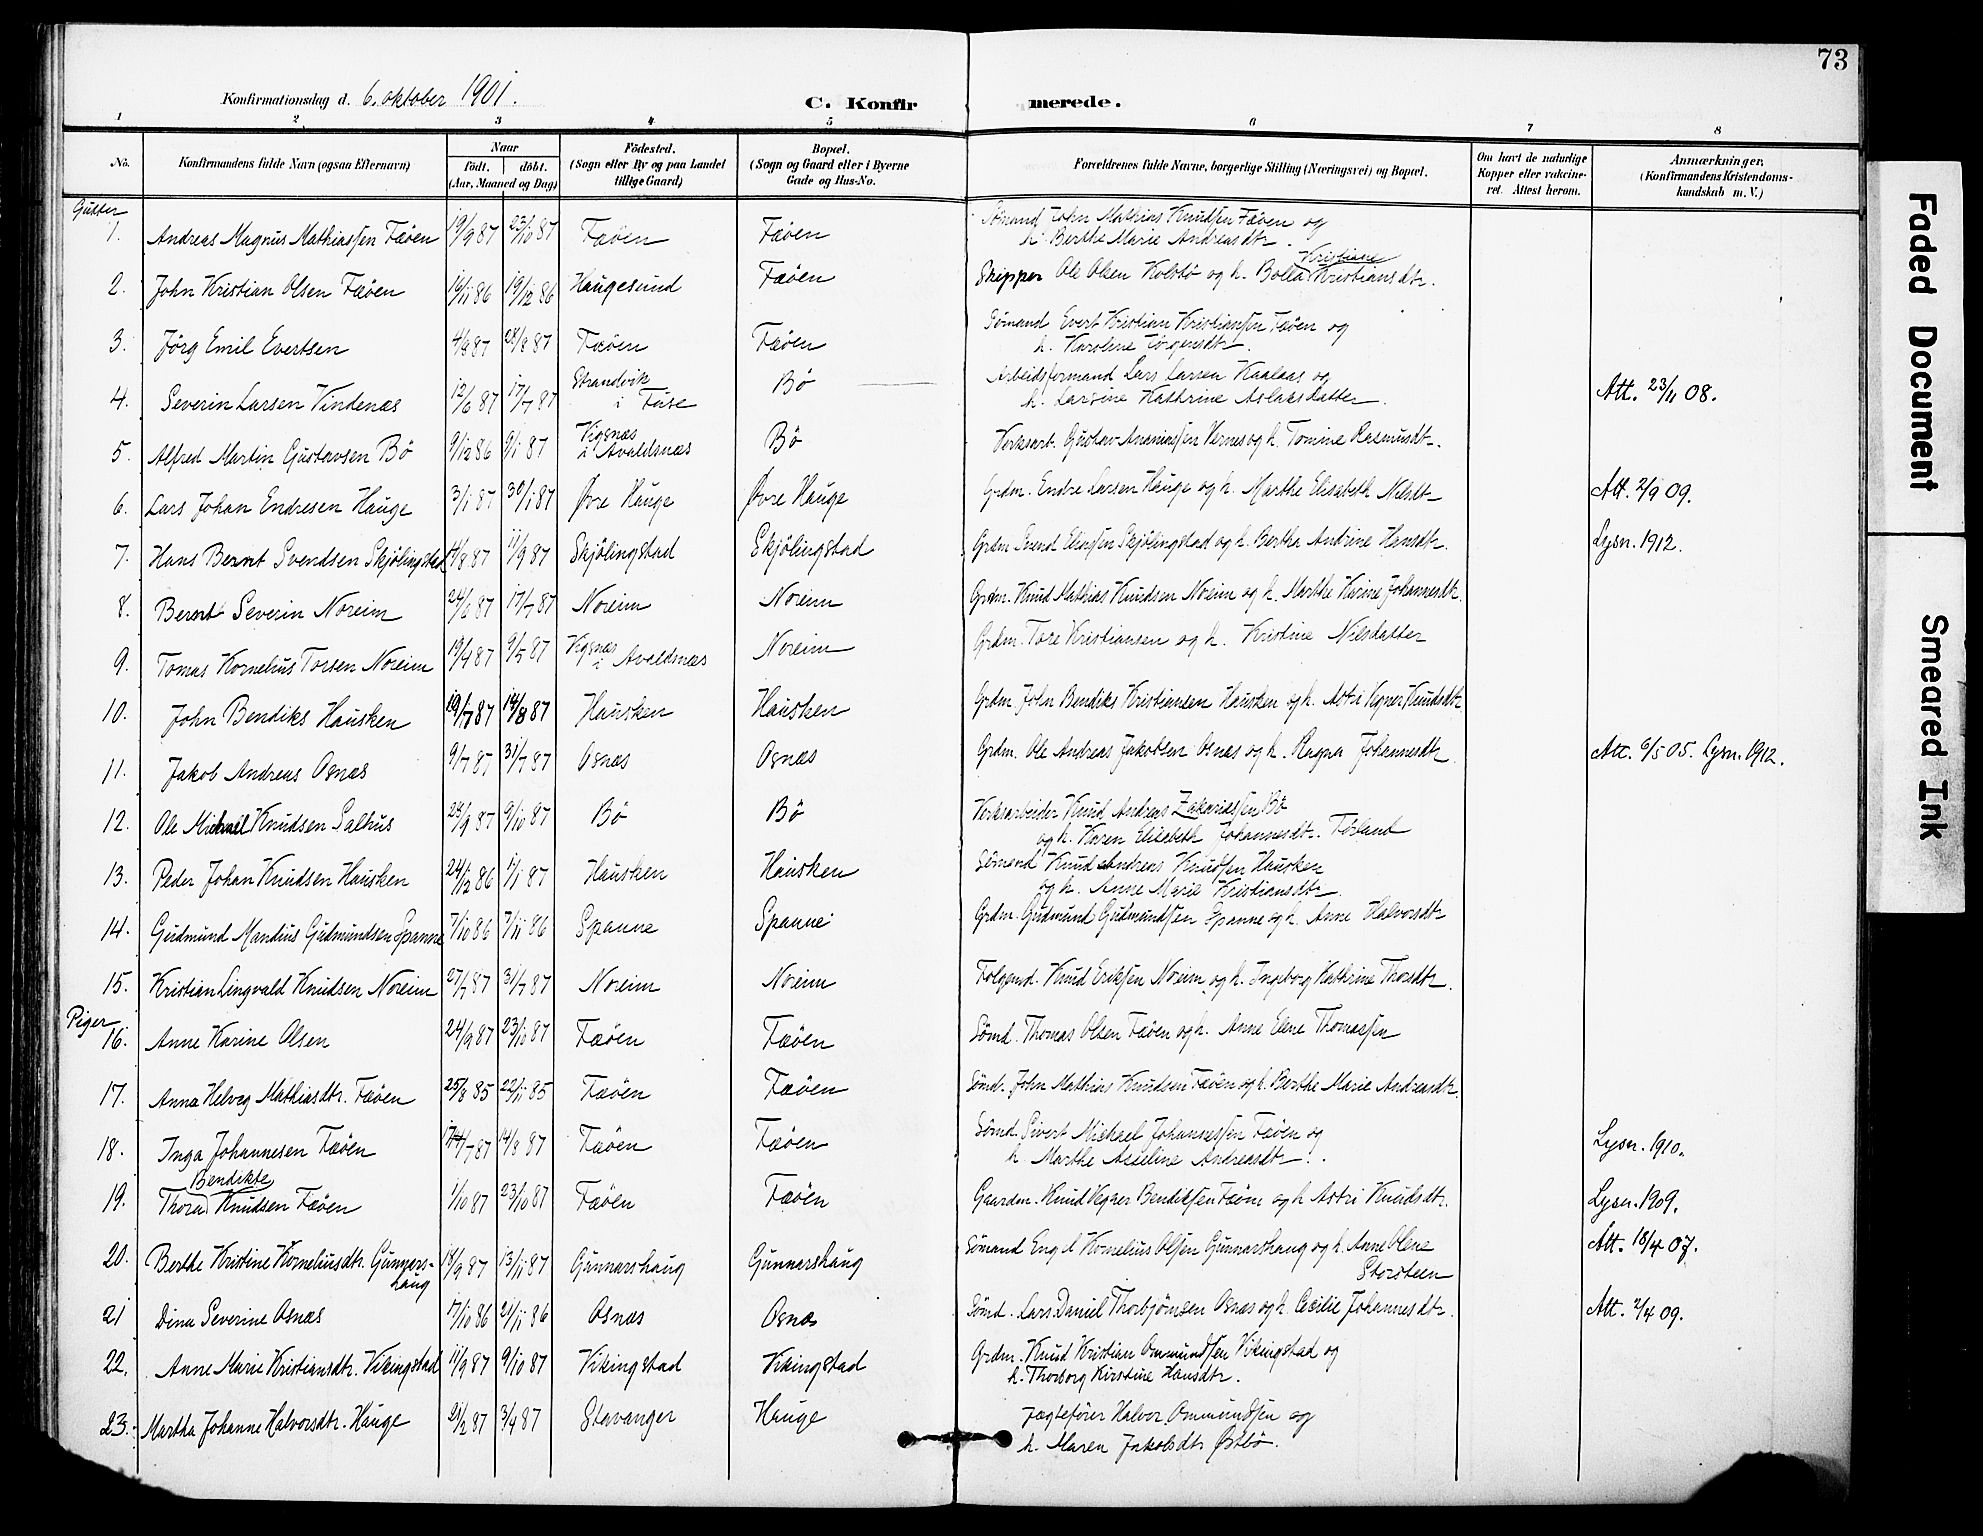 73
Konfirmationsdag d. 6. oktober 1901.
C. Konfirmerede.
1 2 3 4 5 6 7 8
No.
Konfirmandens fulde Navn (ogsaa Efternavn)
Naar
födt. döbt.
(Aar, Maaned og Dag)
Födested.
(Sogn eller By og paa Landet
tillige Gaard)
Bopæl.
(Sogn og Gaard eller i Byerne
Gade og Hus-No.
Forældrenes fulde Navne, borgerlige Stilling (Næringsvei) og Bopæl.
Om havt de naturlige
Kopper eller vaccine-
ret. Attest herom.
Anmærkninger.
(Konfirmandens Kristendoms-
kundskab m. V.)
Gutter
1. Andreas Magnus Mathiassen Fæöen 19/9 87 23/10 87 Fæöen Fæöen Sömand John Mathias Knudsen Fæöen og
h. Berthe Marie Andreasdtr.
2. John Kristian Olsen Fæöen 16/11 86 19/12 86 Haugesund Fæöen Skipper Ole Olsen Kolstö og h. Bolla Kristiane Kristiansdtr.
3. Jörg Emil Evertsen 4/8 87 28/8 87 Fæöen Fæöen Sömand Evert Kristian Kristiansen Fæöen og
h. Karoline Jörgensdtr.
4. Severin Larsen Vindenæs 12/6 87 17/7 87 Strandvik
i Fuse Bö Arbeidsformand Lars Larsen Kaalaas og
h. Larsine Kathrine Aslaksdatter. Att. 23/11 08.
5. Alfred Martin Gustavsen Bö 9/12 86 9/1 87 Vigsnæs
i Avaldsnæs Bö Verksarb. Gustav Ananiassen Vernes og h. Tomine Rasmusdtr.
6. Lars Johan Endresen Hauge 3/1 87 30/1 87 Øvre Hauge Øvre Hauge Grdm. Endre Larsen Hauge og h. Marthe Elisabeth Nilsdtr Att. 2/9 09.
7. Hans Bernt Svendsen Skjölingstad 14/8 87 11/9 87 Skjölingstad Skjölingstad Grdm. Svend Eliassen Skjölingstad og h. Bertha Andrine Hansdtr. Lysn. 1912.
8. Bernt Severin Noreim 24/6 87 17/7 87 Noreim Noreim Grdm. Knud Mathias Knudsen Noreim og h. Marthe Karine Johannesdtr.
9. Tomas Kornelius Torsen Noreim 19/4 87 9/5 87 Vigsnæs
i Avaldsnæs Noreim Grdm. Tore Kristiansen og h. Kristine Nilsdatter
10. John Bendiks Hausken 19/7 87 14/8 87 Hausken Hausken Grdm. John Bendiks Kristiansen Hausken og h. Astri Vegner Knudsdtr
11. Jakob Andreas Osnæs 9/7 87 31/7 87 Osnæs Osnæs Grdm. Ole Andreas Jakobsen Osnæs og h. Ragna Johannesdtr. Att. 6/5 05. Lysn. 1912.
12. Ole Michael Knudsen Salhus 24/9 87 9/10 87 Bö Bö Verksarbeider Knud Andreas Zakariassen Bö
og h. Karen Elisabeth Johannesdtr. Förland
13. Peder Johan Knudsen Hausken 24/12 86 1/1 87 Hausken Hausken Sömand Knud Andreas Knudsen Hausken
og h. Anne Marie Kristiansdtr.
14. Gudmund Mandius Gudmundsen Spanne 7/10 86 7/11 86 Spanne Spanne Grdm. Gudmund Gudmundsen Spanne og h. Anne Halvorsdtr
15. Kristian Lingvald Knudsen Noreim 27/7 87 31/7 87 Noreim Noreim Folgemd. Knud Eriksen Noreim og h. Ingeborg Kathrine Thorsdtr.
Piger
16. Anne Karine Olsen 24/9 87 23/10 87 Fæöen Fæöen Sömd. Thomas Olsen Fæöen og h. Anne Elene Thomassen
17. Anna Helveg Mathiasdtr. Fæöen 25/8 85 22/11 85 Fæöen Fæöen Sömd. John Mathias Knudsen Fæöen og h. Berthe Marie Andreasdtr.
18. Inga Johannesen Fæöen /7 87 14/8 87 Fæöen Fæöen Sömd. Sivert Michael Johannessen Fæöen og
h Marthe Aseline Andreasdtr. Lysn. 1910.
19. Thora Bendikte Knudsen Fæöen 1/10 87 23/10 87 Fæöen Fæöen Gaardm. Knud Vegner Bendiksen Fæöen og h Astri Knudsdtr. Lysn. 1909.
20. Berthe Kristine Korneliusdtr. Gunnars-
haug 14/9 87 13/11 87 Gunnarshaug Gunnarshaug Sömand Engel Kornelius Olsen Gunnarshaug og h. Anne Olene
Storsteen Att. 18/4 07.
21 Dina Severine Osnæs 17/10 86 21/11 86 Osnæs Osnæs Sömd. Lars Daniel Thorbjörnsen Osnæs og h Cecilie Johannesdtr. Att. 2/4 09.
22. Anne Marie Kristiansdtr. Vikingstad 11/9 87 9/10 87 Vikingstad Vikingstad Grdm. Knud Kristian Ommundsen Vikingstad og
h. Thorborg Kirstine Hansdtr.
23. Martha Johanne Halvorsdtr. Hauge 21/2 87 3/4 87 Stavanger Hauge Jægtefører Halvor Ommundsen og
h. Maren Jakobsdtr Østbö.
Faded Document
Smeared Ink